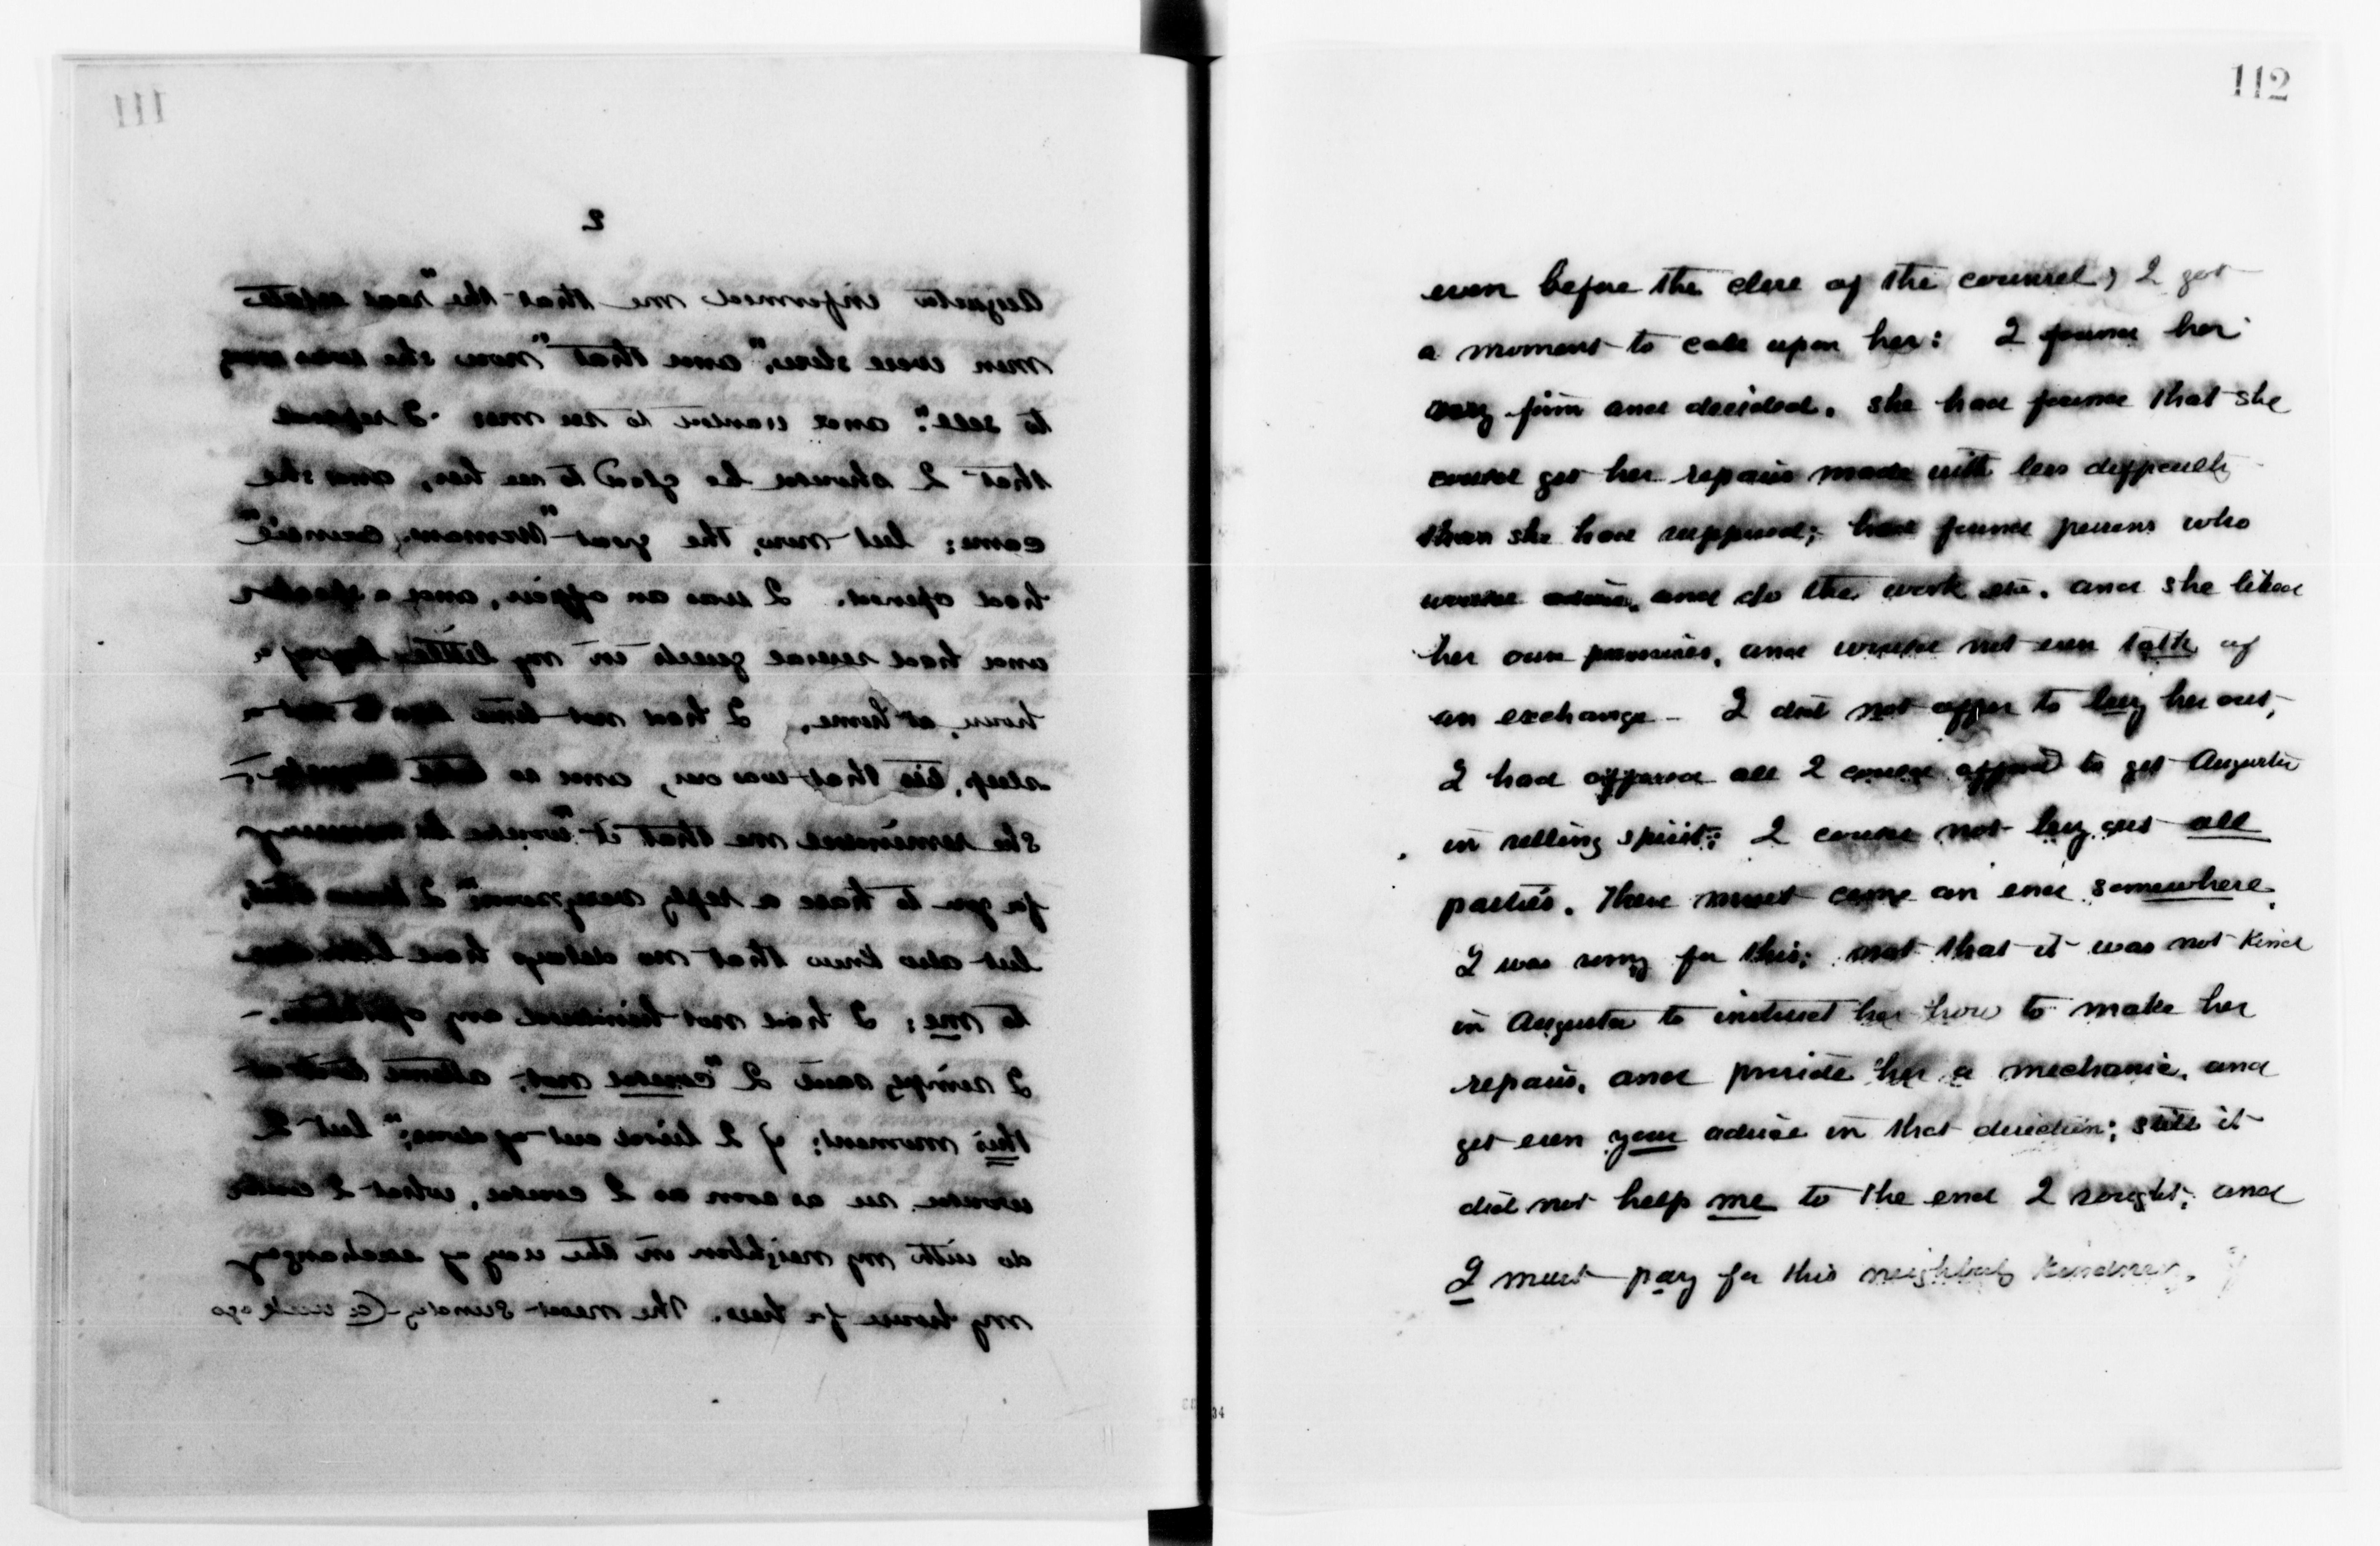 111
2
Augusta informed me that the "real estate
men were slow," and that "now" she was
to sell": and wanted to see me. I replied
that I should be glad to see her, and she
came; but now, the great "Woman's Council"
had opened. I was an officer, and a speaker
and had several guests in my little
home, I had not time to
sleep, till that was over, and so told
she reminded me that it "would be necessary
for you to have a reply very soon," I knew this,
but also knew that no delays have been
to me; I had not hindered any
I simply said I "could not, attend to it at
this moment; if I lived out of doors;" but I
would see as soon as I could, what I could
do with my neighbor in the way of exchanging
my house for hers. The next Sunday (a week ago
112
even before the close of the council) I got
a moment to call upon her: I found her
very firm and decided. she had found that she
could get her repairs made with less difficulty
than she had supposed; had found persons who
would advise, and do the work etc. and she liked
her own premises, and would not even talk of
an exchange - I did not offer to buy her out,
I had offered all I could afford to get Augusta
in selling spirit; I could not buy out all
parties. There must come an end somewhere.
I was sorry for this; not that it was not kind
in Augusta to instruct her how to make her
repairs, and provide her a mechanic, and
get even your advice in that direction; still it
did not help me to the end I sought; and
I must pay for this neighborly kindness,